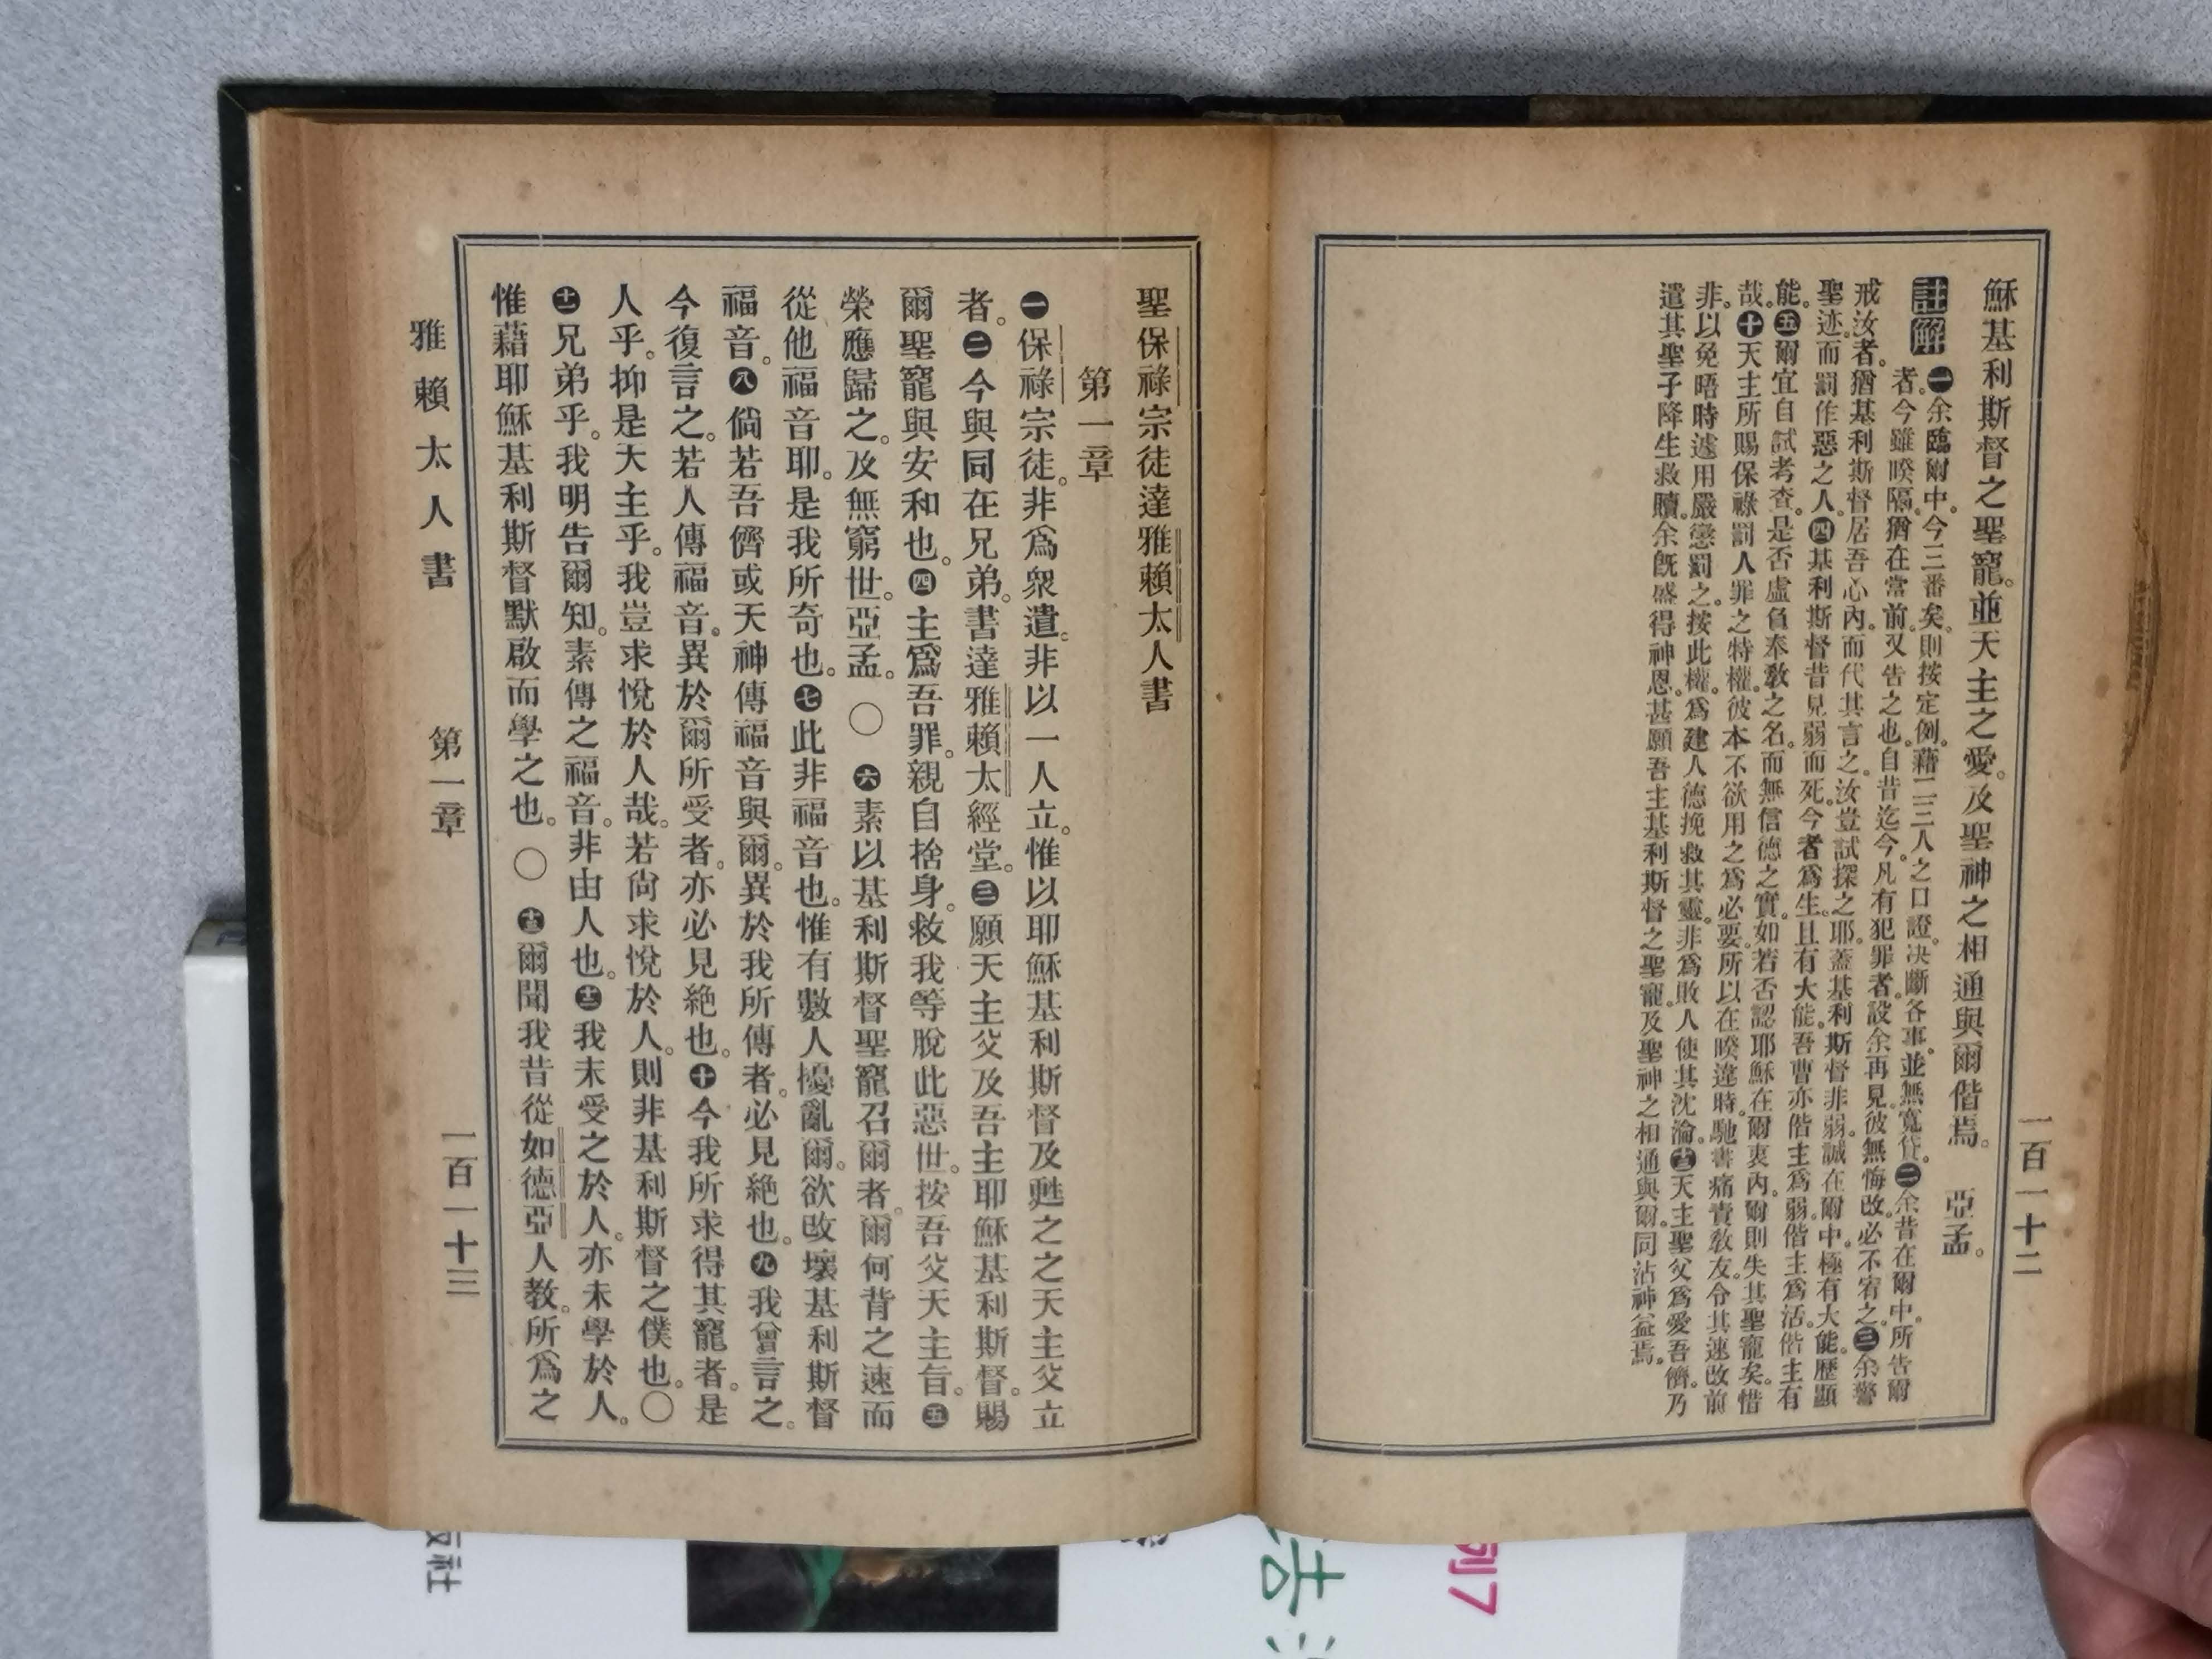 穌基利斯督之聖寵。並天主之愛。及聖神之相通與爾偕焉。 亞孟。
註解 一余臨爾中。今三番矣。則按定例。藉二三人之口證。决斷各事。並無寬貸。二余昔在爾中。所告爾
者。今雖暌隔。猶在當前。又告之也。自昔迄今。凡有犯罪者。設余再見。彼無悔改。必不宥之。三余警
戒汝者。猶基利斯督居吾心內。而代其言之。汝豈試探之耶。蓋基利斯督非弱。誠在爾中。極有大能。歷顯
聖迹。而罰作惡之人。四基利斯督昔見弱而死。今者爲生。且有大能。吾曹亦偕主爲弱。偕主爲活。偕主有
能。五爾宜自試考查。是否虛負奉敎之名。而無信德之實。如若否認耶穌在爾衷內。爾則失其聖寵矣。惜
哉。十天主所賜保祿罰人罪之特權。彼本不欲用之爲必要。所以在暌違時。馳書痛責敎友。令其速改前
非。以免晤時遽用嚴懲罰之。按此權。爲建人德挽救其靈。非爲敗人使其沈淪。十三天主聖父爲愛吾儕。乃
遣其聖子降生救贖。余既盛得神恩。甚願吾主基利斯督之聖寵。及聖神之相通與爾。同沾神益焉。
一百一十二
聖保祿宗徒達雅賴太人書
第一章
一保祿宗徒。非爲衆遣。非以一人立。惟以耶穌基利斯督及甦之之天主父立
者。二今與同在兄弟。書達雅賴太經堂。三願天主父及吾主耶穌基利斯督。賜
爾聖寵與安和也。四主爲吾罪。親自捨身。救我等脫此惡世。按吾父天主旨。五
榮應歸之。及無窮世。亞孟。〇六素以基利斯督聖寵召爾者。爾何背之速而
從他福音耶。是我所奇也。七此非福音也。惟有數人擾亂爾。欲改壞基利斯督
福音。八倘若吾儕或天神傳福音與爾。異於我所傳者。必見絶也。九我曾言之。
今復言之。若人傳福音。異於爾所受者。亦必見絶也。十今我所求得其寵者。是
人乎。抑是天主乎。我豈求悅於人哉。若尙求悅於人。則非基利斯督之僕也。〇
十一兄弟乎。我明告爾知。素傳之福音。非由人也。十二我未受之於人。亦未學於人。
惟藉耶穌基利斯督默啟而學之也。〇十三爾聞我昔從如德亞人敎。所爲之
雅賴太人書 第一章 一百一十三
列7